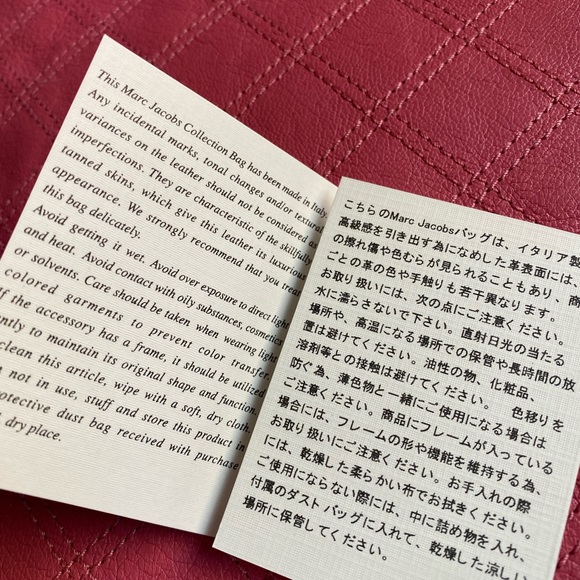 This Marc Jacobs Collection Bag has been made in Italy.
Any incidental marks, tonal changes and/or textural
variances on the leather should not be considered as
imperfections. They are characteristic of the skillfully
tanned skins, which give this leather its luxurious
appearance. We strongly recommend that you treat
this bag delicately.
Avoid getting it wet. Avoid over exposure to direct light
and heat. Avoid contact with oily substances, cosmetics
or solvents. Care should be taken when wearing light
colored garments to prevent color transfer.
If the accessory has a frame, it should be utilized
to maintain its original shape and function.
clean this article, wipe with a soft, dry cloth.
not in use, stuff and store this product in
dust bag received with purchase
dry place.
こちらのMarc Jacobsバッグは、イタリア製
高級感を引き出す為になめした革表面には、
の擦れ傷や色むらが見られることもあり、商
ごとの革の色や手触りも若干異なります。
お取り扱いには、次の点にご注意ください。
水に濡らさないで下さい。直射日光の当たる
場所や、高温になる場所での保管や長時間の放
置は避けてください。油性の物、化粧品、
溶剤等との接触は避けてください。 色移りを
防ぐ為、薄色物と一緒にご使用になる場合は
ご注意ください。商品にフレームが入っている
場合には、フレームの形や機能を維持する為、
お取り扱いにご注意ください。お手入れの際
には、乾燥した柔らかい布でお拭きください。
ご使用にならない際には、中に詰め物を入れ、
付属のダストバッグに入れて、乾燥した涼しい
場所に保管してください。